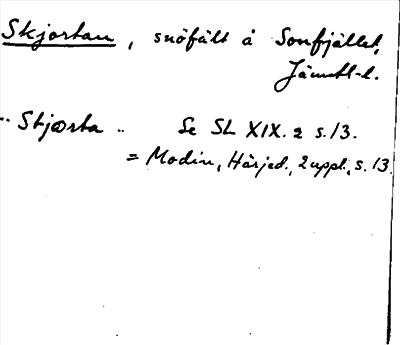 Skjortan, snöfält å Sonfjället,
Jämtl-l.
"Skjorta" Se SL XIX. 2 s. 13.
= Modin, Härjed., 2 uppl., s. 13.